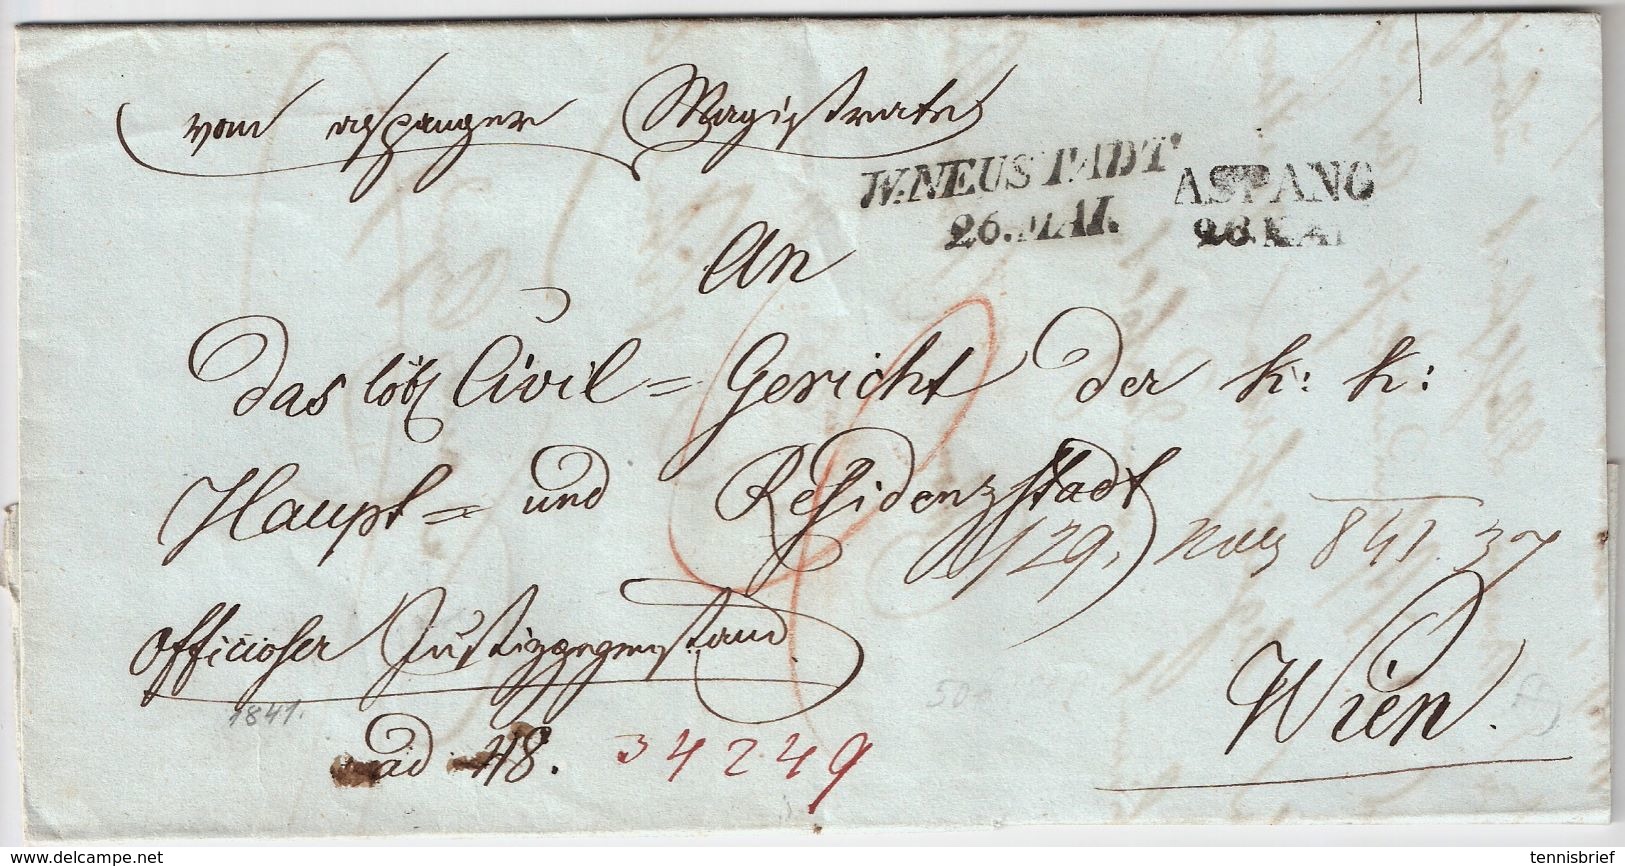 vom aspanger Magistrate
W.NEUSTADT
26.MAI.
ASPANG
26.MAI
An
das löbl Civil = Gericht der k: k:
Haupt = und Residenzstadt
129, 841 37
officioser Justizgegenstand
Wien.
1841.
ad 48. 34249
50
www.delcampe.net
tennisbrief